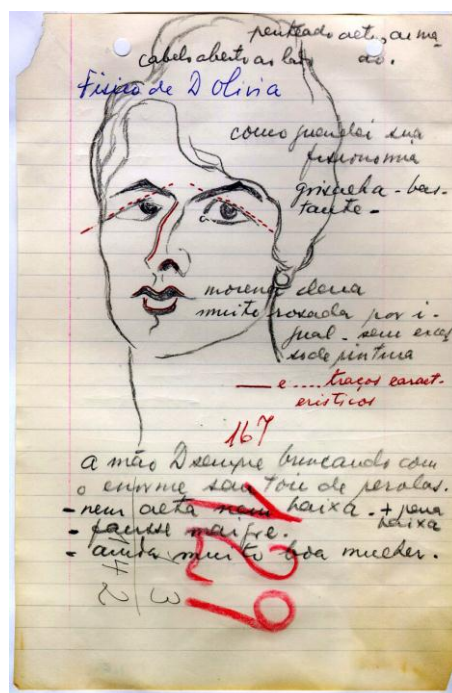 penteado alto, arma
do.
cabelo aberto ao lado
Fisico de D Olivia
como guardei sua
fisionomia
grisalha - bas-
tante -
morena clara
muito rosada por i-
gual - sem exces
so de pintura
— e .... traços caract-
erísticos
167
a mão D sempre brincando com
o enorme sautoir de perolas.
- nem alta nem baixa - + para
baixa
- fausse maigre.
- ainda muito boa mulher.
129